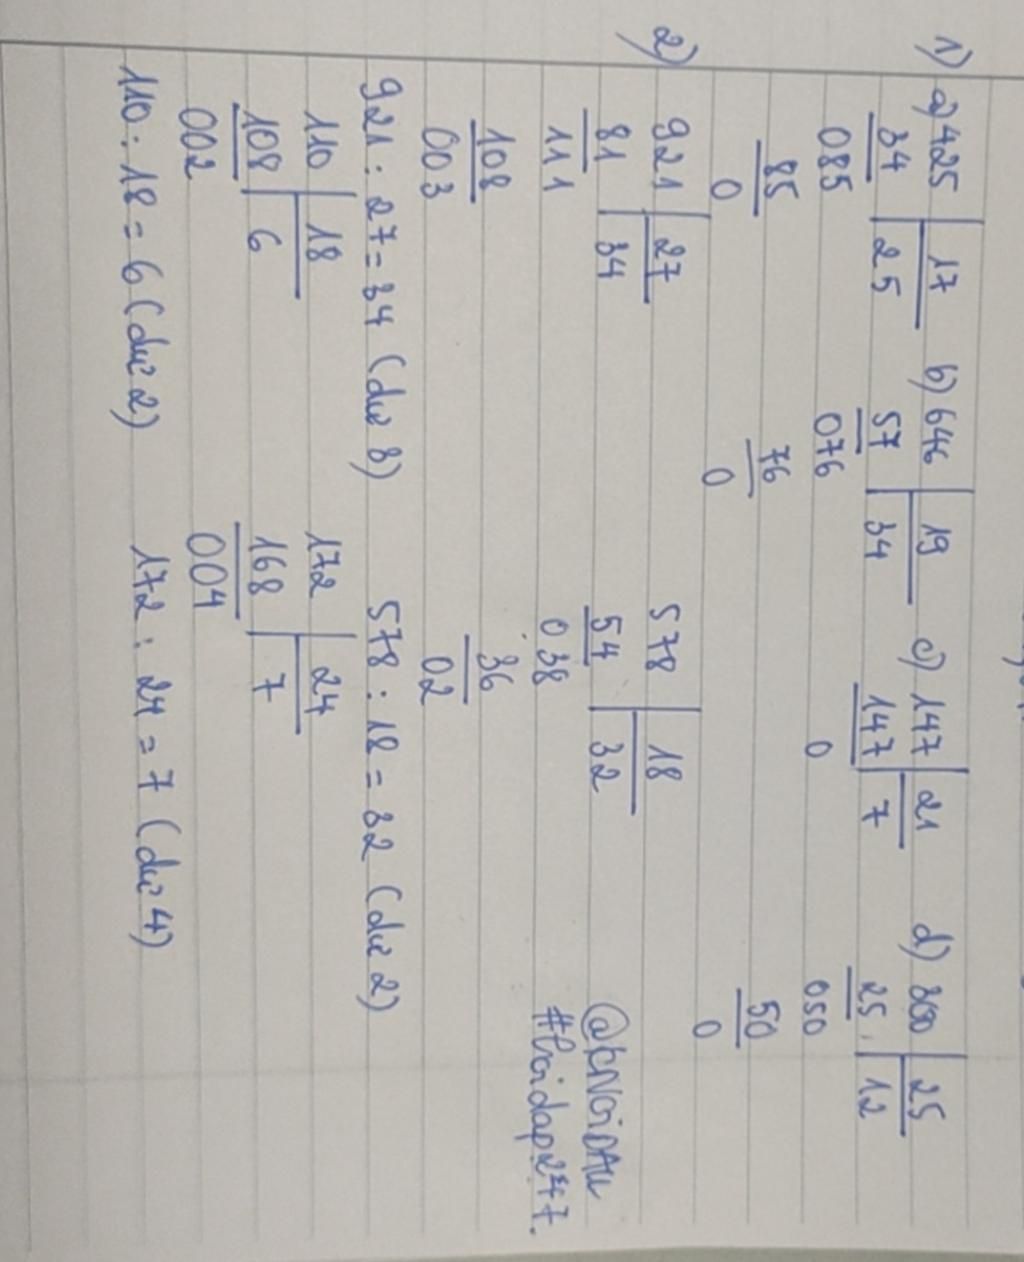 1) a) 425 | 17 b) 646 | 19 c) 147 | 21 d) 300 | 25
34 | 25 57 | 34 147 | 7 25 | 12
085 076 0 050
85 76 50
0 0 0
2) 921 | 27 578 | 18
81 | 34 54 | 32 @KNGiDAU
111 038 #loidap247.
108 36
003 02
921 : 27 = 34 (dư 3) 578 : 18 = 32 (dư 2)
110 | 18 172 | 24
108 | 6 168 | 7
002 004
110 : 18 = 6 (dư 2) 172 : 24 = 7 (dư 4)